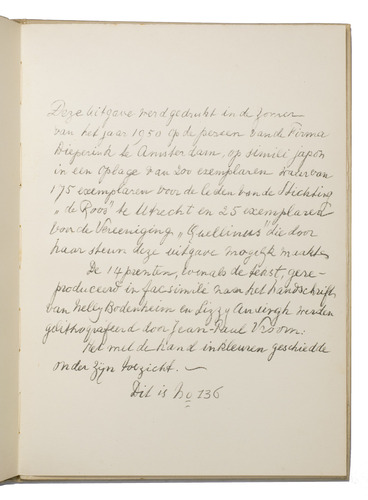 Deze uitgave werd gedrukt in de zomer
van het jaar 1950 op de persen van de Firma
Dieperink te Amsterdam, op simili japon
in een oplage van 200 exemplaren waarvan
175 exemplaren voor de leden van de Stichting
„de Roos" te Utrecht en 25 exemplaren
voor de Vereeniging „Quellinus" die door
haar steun deze uitgave mogelijk maakte.
De 14 prenten, evenals de tekst, gere-
produceerd in facsimilé naar het handschrift
van Nelly Bodenheim en Lizzy Ansingh werden
gelithografeerd door Jean-Paul Vroom:
Het met de hand inkleuren geschiedde
onder zijn toezicht.
Dit is No 136